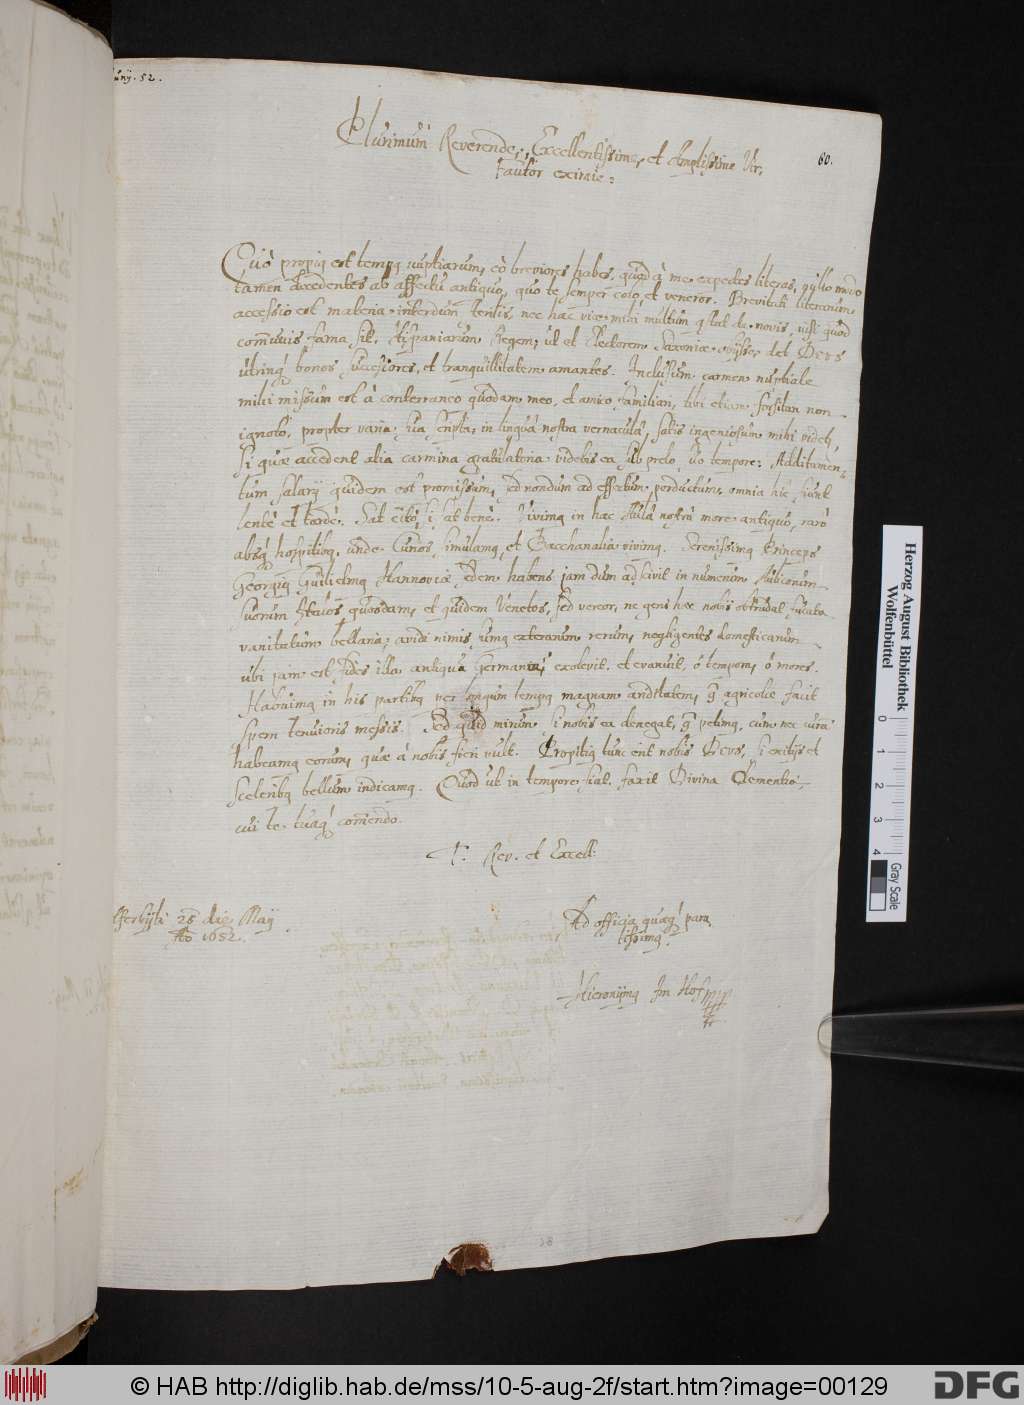 Junij. 52.
60.
Plurimum Reverende, Excellentissime, et Amplissime Vir,
Fautor eximie:
Quò propiq est tempq nuptiarum, eò breviores habes, quod à me expectes literas, nullo modo
tamen decedentes ab affectu antiquo, quo te semper colo, et veneror. Brevitati literarum
accessio est materia interdum sterilis, nec hac vice mihi multum constat de novis, nisi quod
communis fama sit, Hispaniarum Regem, ut et Electorem Saxoniae obijsse, det DEUS
utrinq́ bonos successores, et tranquillitatem amantes. Inclusum carmen nuptiale
mihi missum est à conterraneo quodam meo, et amico familiari, tibi etiam forsitan non
ignoto, propter varia sua scripta, in linguâ nostrâ vernaculâ, satis ingeniosum mihi videt,
Si quae accedent alia carmina gratulatoria videbis ea sub prelo, suo tempore: Additamen-
tum salarij quidem est promissum, sed nondum ad effectum perductum, omnia hîc fiunt
lentè et tardè. Sat citò, si sat benè. Vivimq in hac Aulâ nostrâ more antiquo, rarò
absq́ hospitibq, unde Curios simulamq, et Bacchanalia vivimq. Serenissimq Princeps
Georgiq Guilielmq Hannoviae sedem habens jam dum adscivit in numerum Aulicorum
suorum Italos quosdam, et quidem Venetos, sed vereor, ne gens haec nobis obtrudat fucata
vanitatum bellaria, avidi nimis sumq exterarum rerum, negligentes domesticarum
ubi jam est fides illa antiqua Germaniae, exolevit et evanuit, ô tempora, ô mores.
Habuimq in his partibq per longum tempq magnam ariditatem, q agricolis facit
spem tenuioris messis. Sed quid mirum si nobis ea denegat, q petimq, cum nec curâ
habeamq eorum, quae à nobis fieri vult. Propitiq tunc erit nobis DEUS, si vitijs et
sceleribq bellum indicamq. Quod ut in tempore fiat, faxit Divina Clementia,
cui te tuaq́ commendo.
T. Rev. et Excell:
28 die Maij
Ao 1652.
Ad officia quaeq́ para
tissimq
Hieronijmq Im Hof
Herzog August Bibliothek
Wolfenbüttel
0 1 2 3 4
Gray Scale
© HAB http://diglib.hab.de/mss/10-5-aug-2f/start.htm?image=00129
DFG